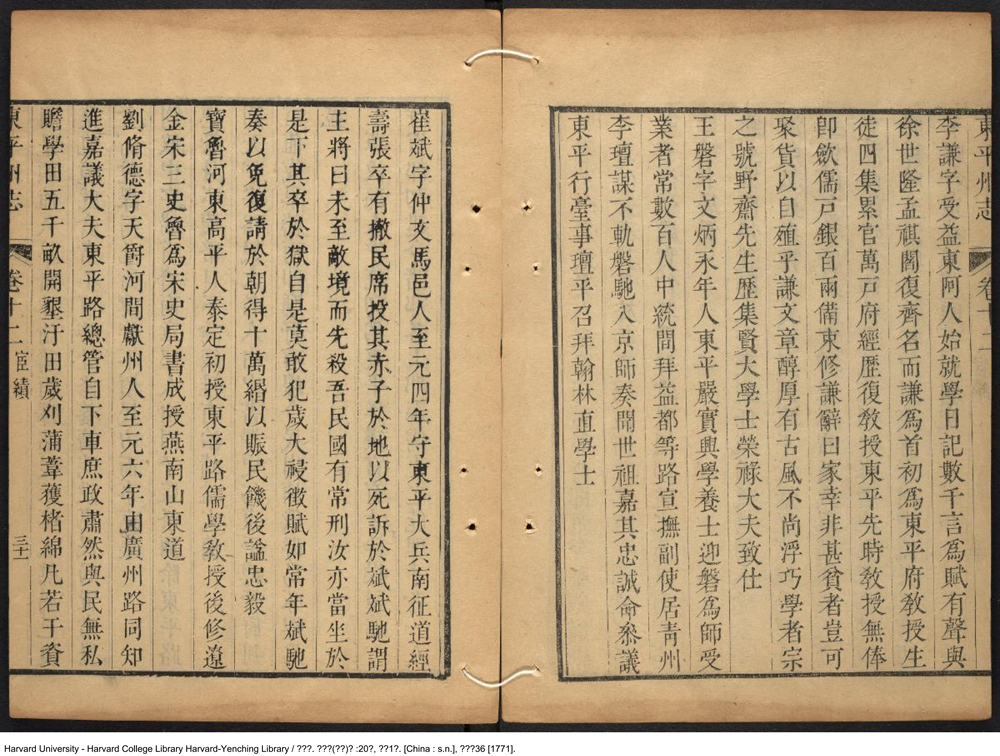 東平州志 卷十二
李謙字受益東阿人始就學日記數千言爲賦有聲與
徐世隆孟祺閻復齊名而謙爲首初爲東平府教授生
徒四集累官萬戸府經歷復教授東平先時教授無俸
卽歛儒戸銀百兩備束修謙辭曰家幸非甚貧者豈可
聚貨以自殖乎謙文章醇厚有古風不尚浮巧學者宗
之號野齋先生歷集賢大學士榮祿大夫致仕
王磐字文炳永年人東平嚴實興學養士迎磐爲師受
業者常數百人中統間拜益都等路宣撫副使居青州
李璮謀不軌磐馳入京師奏聞世祖嘉其忠誠命叅議
東平行臺事璮平召拜翰林直學士
崔斌字仲文馬邑人至元四年守東平大兵南征道經
壽張卒有撤民席投其赤子於地以死訴於斌斌馳謂
主將曰未至敵境而先殺吾民國有常刑汝亦當坐於
是下其卒於獄自是莫敢犯歲大祲徵賦如常年斌馳
奏以免復請於朝得十萬緡以賑民饑後諡忠毅
寶魯河東高平人泰定初授東平路儒學教授後修遼
金宋三史魯爲宋史局書成授燕南山東道
劉脩德字天爵河間獻州人至元六年由廣州路同知
進嘉議大夫東平路總管自下車庶政肅然與民無私
贍學田五千畝開墾汙田歲刈蒲葦穫楮綿凡若干資
東平州志 卷十二 宦績 三十一
Harvard University - Harvard College Library Harvard-Yenching Library / ???. ???(??)? :20?, ??1?. [China : s.n.], ???36 [1771].